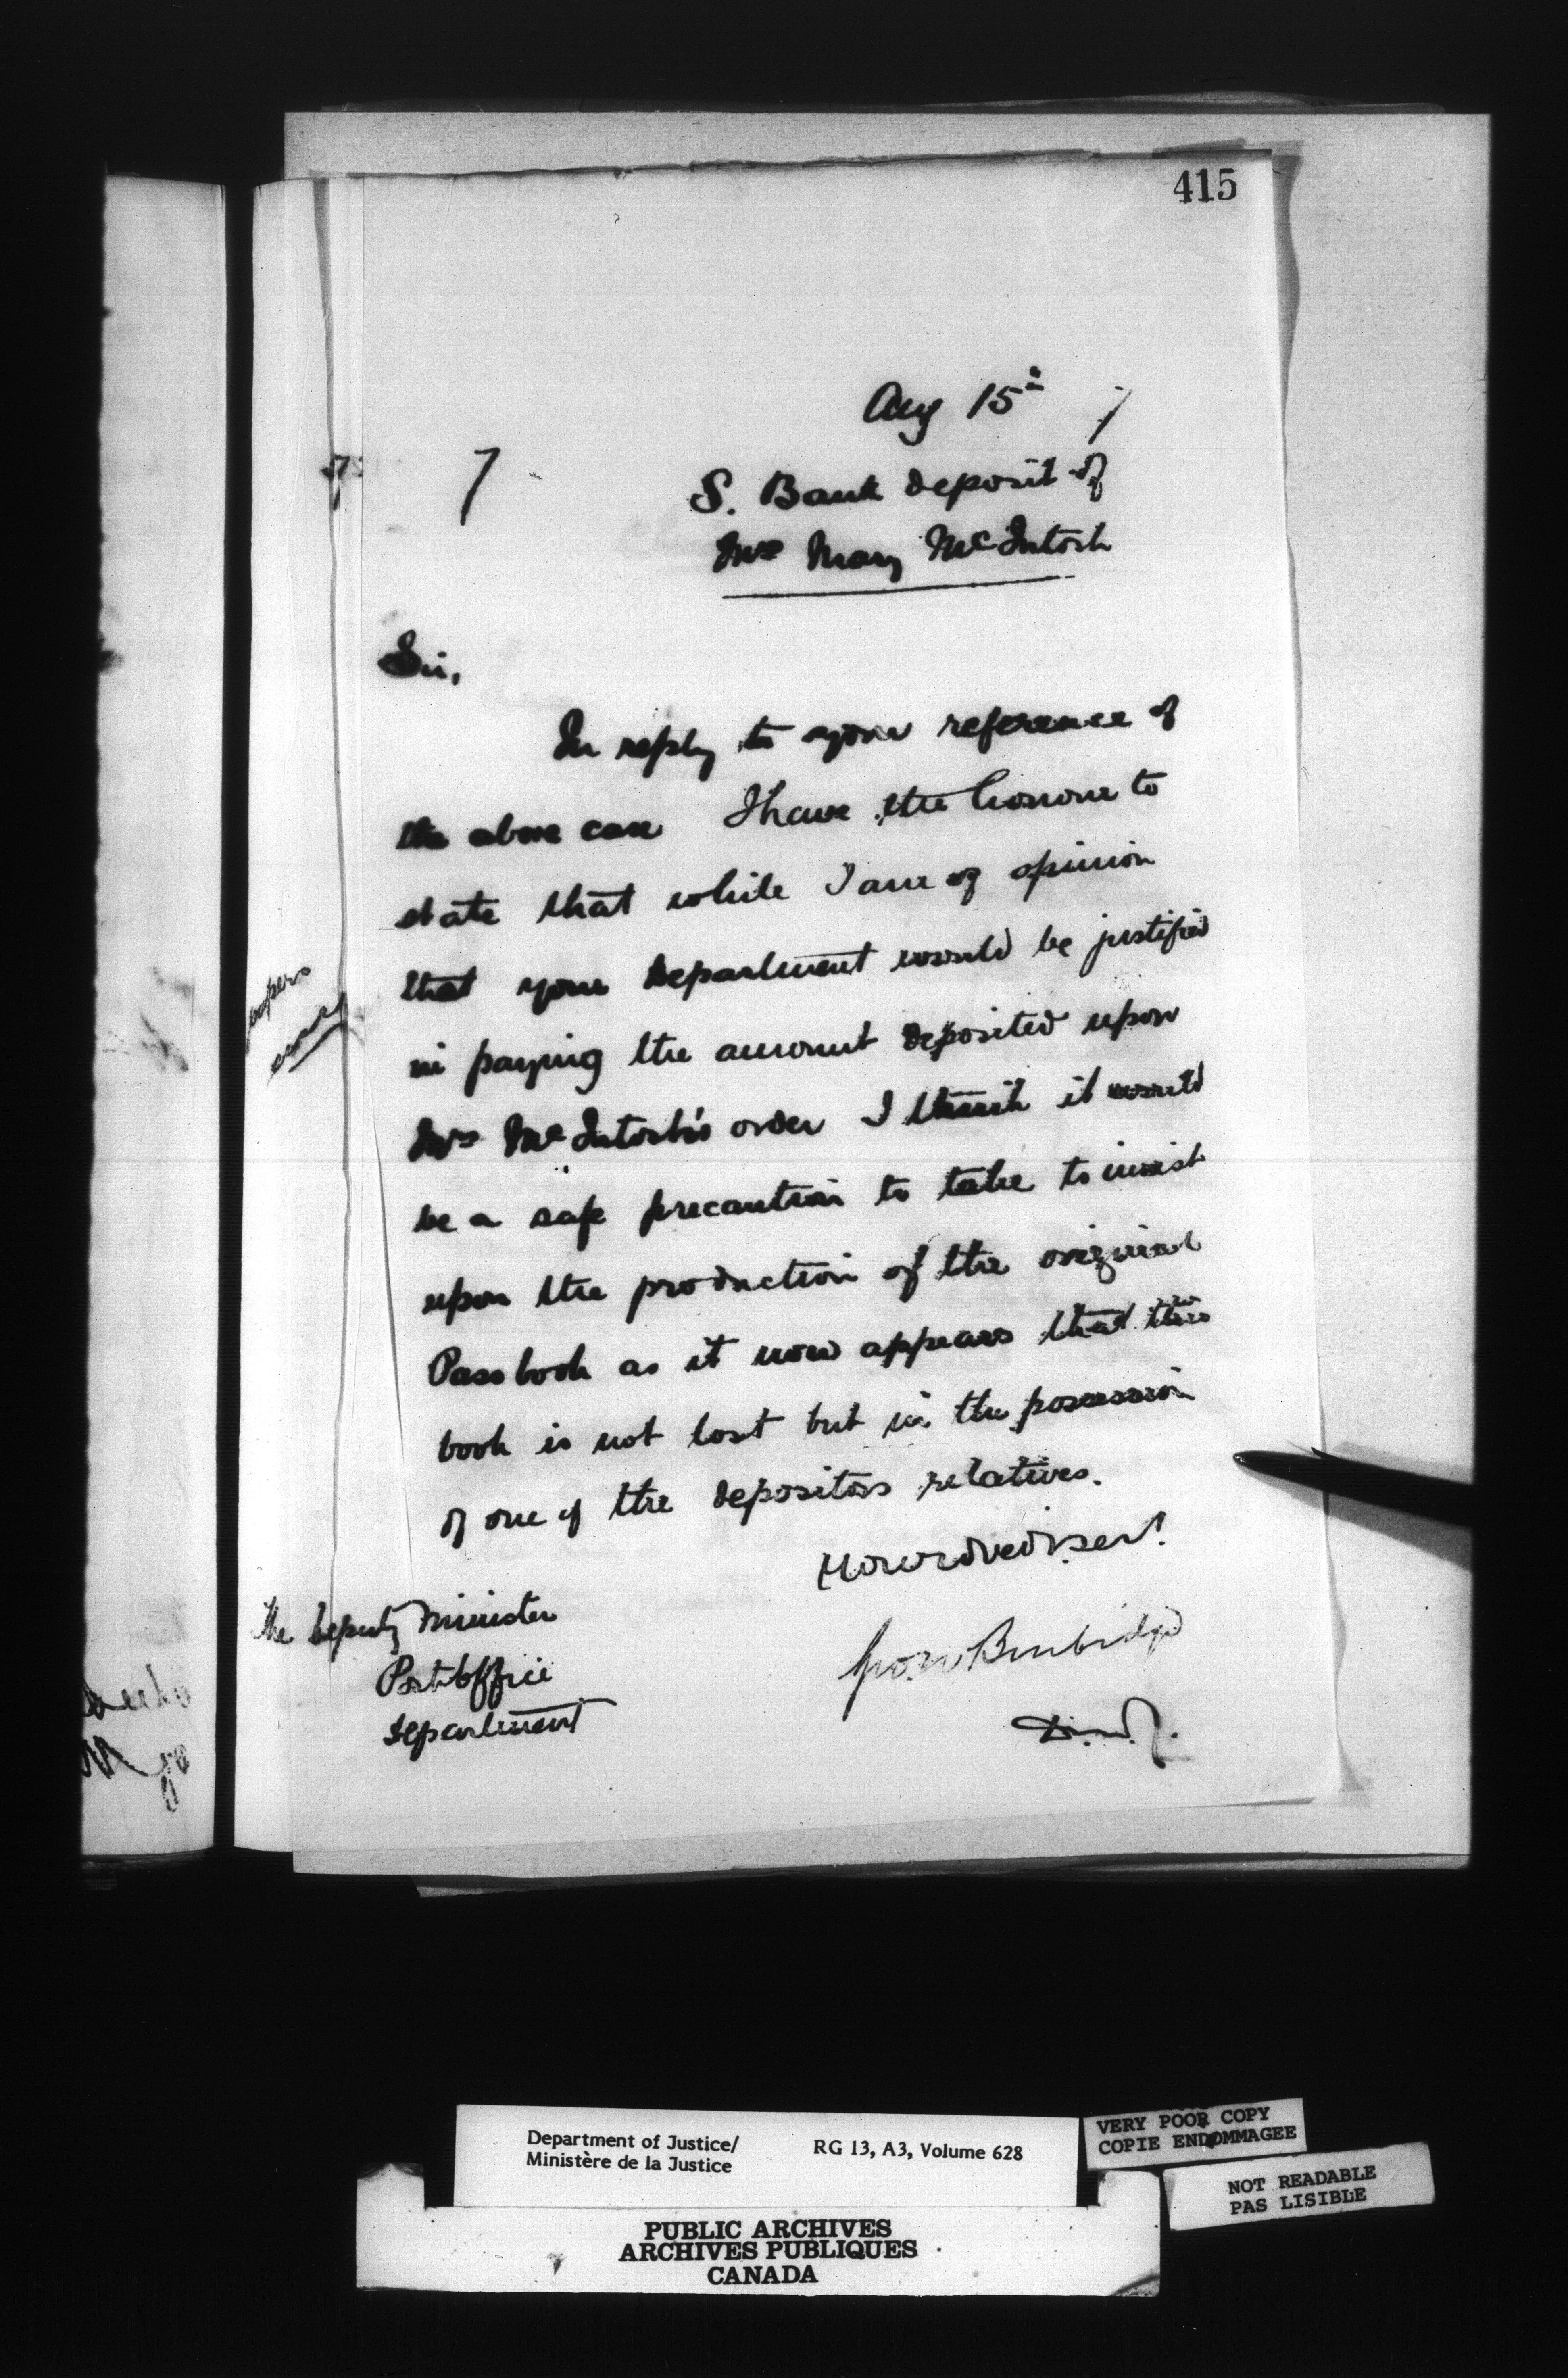 415
Aug 15th 7
7
S. Bank deposit of
Mrs Mary McIntosh
Sir,
In reply to your reference of
the above case I have the honour to
state that while I am of opinion
that your Department would be justified
in paying the amount deposited upon
Mrs McIntosh's order I think it would
be a safe precaution to take to insist
upon the production of the original
Pass book as it now appears that this
book is not lost but in the possession
of one of the depositors relatives.
papers
Geo. W Burbidge
D.M.J.
The Deputy Minister
Post Office
Department
Department of Justice/
Ministère de la Justice
RG 13, A3, Volume 628
VERY POOR COPY
COPIE ENDOMMAGEE
NOT READABLE
PAS LISIBLE
PUBLIC ARCHIVES
ARCHIVES PUBLIQUES
CANADA